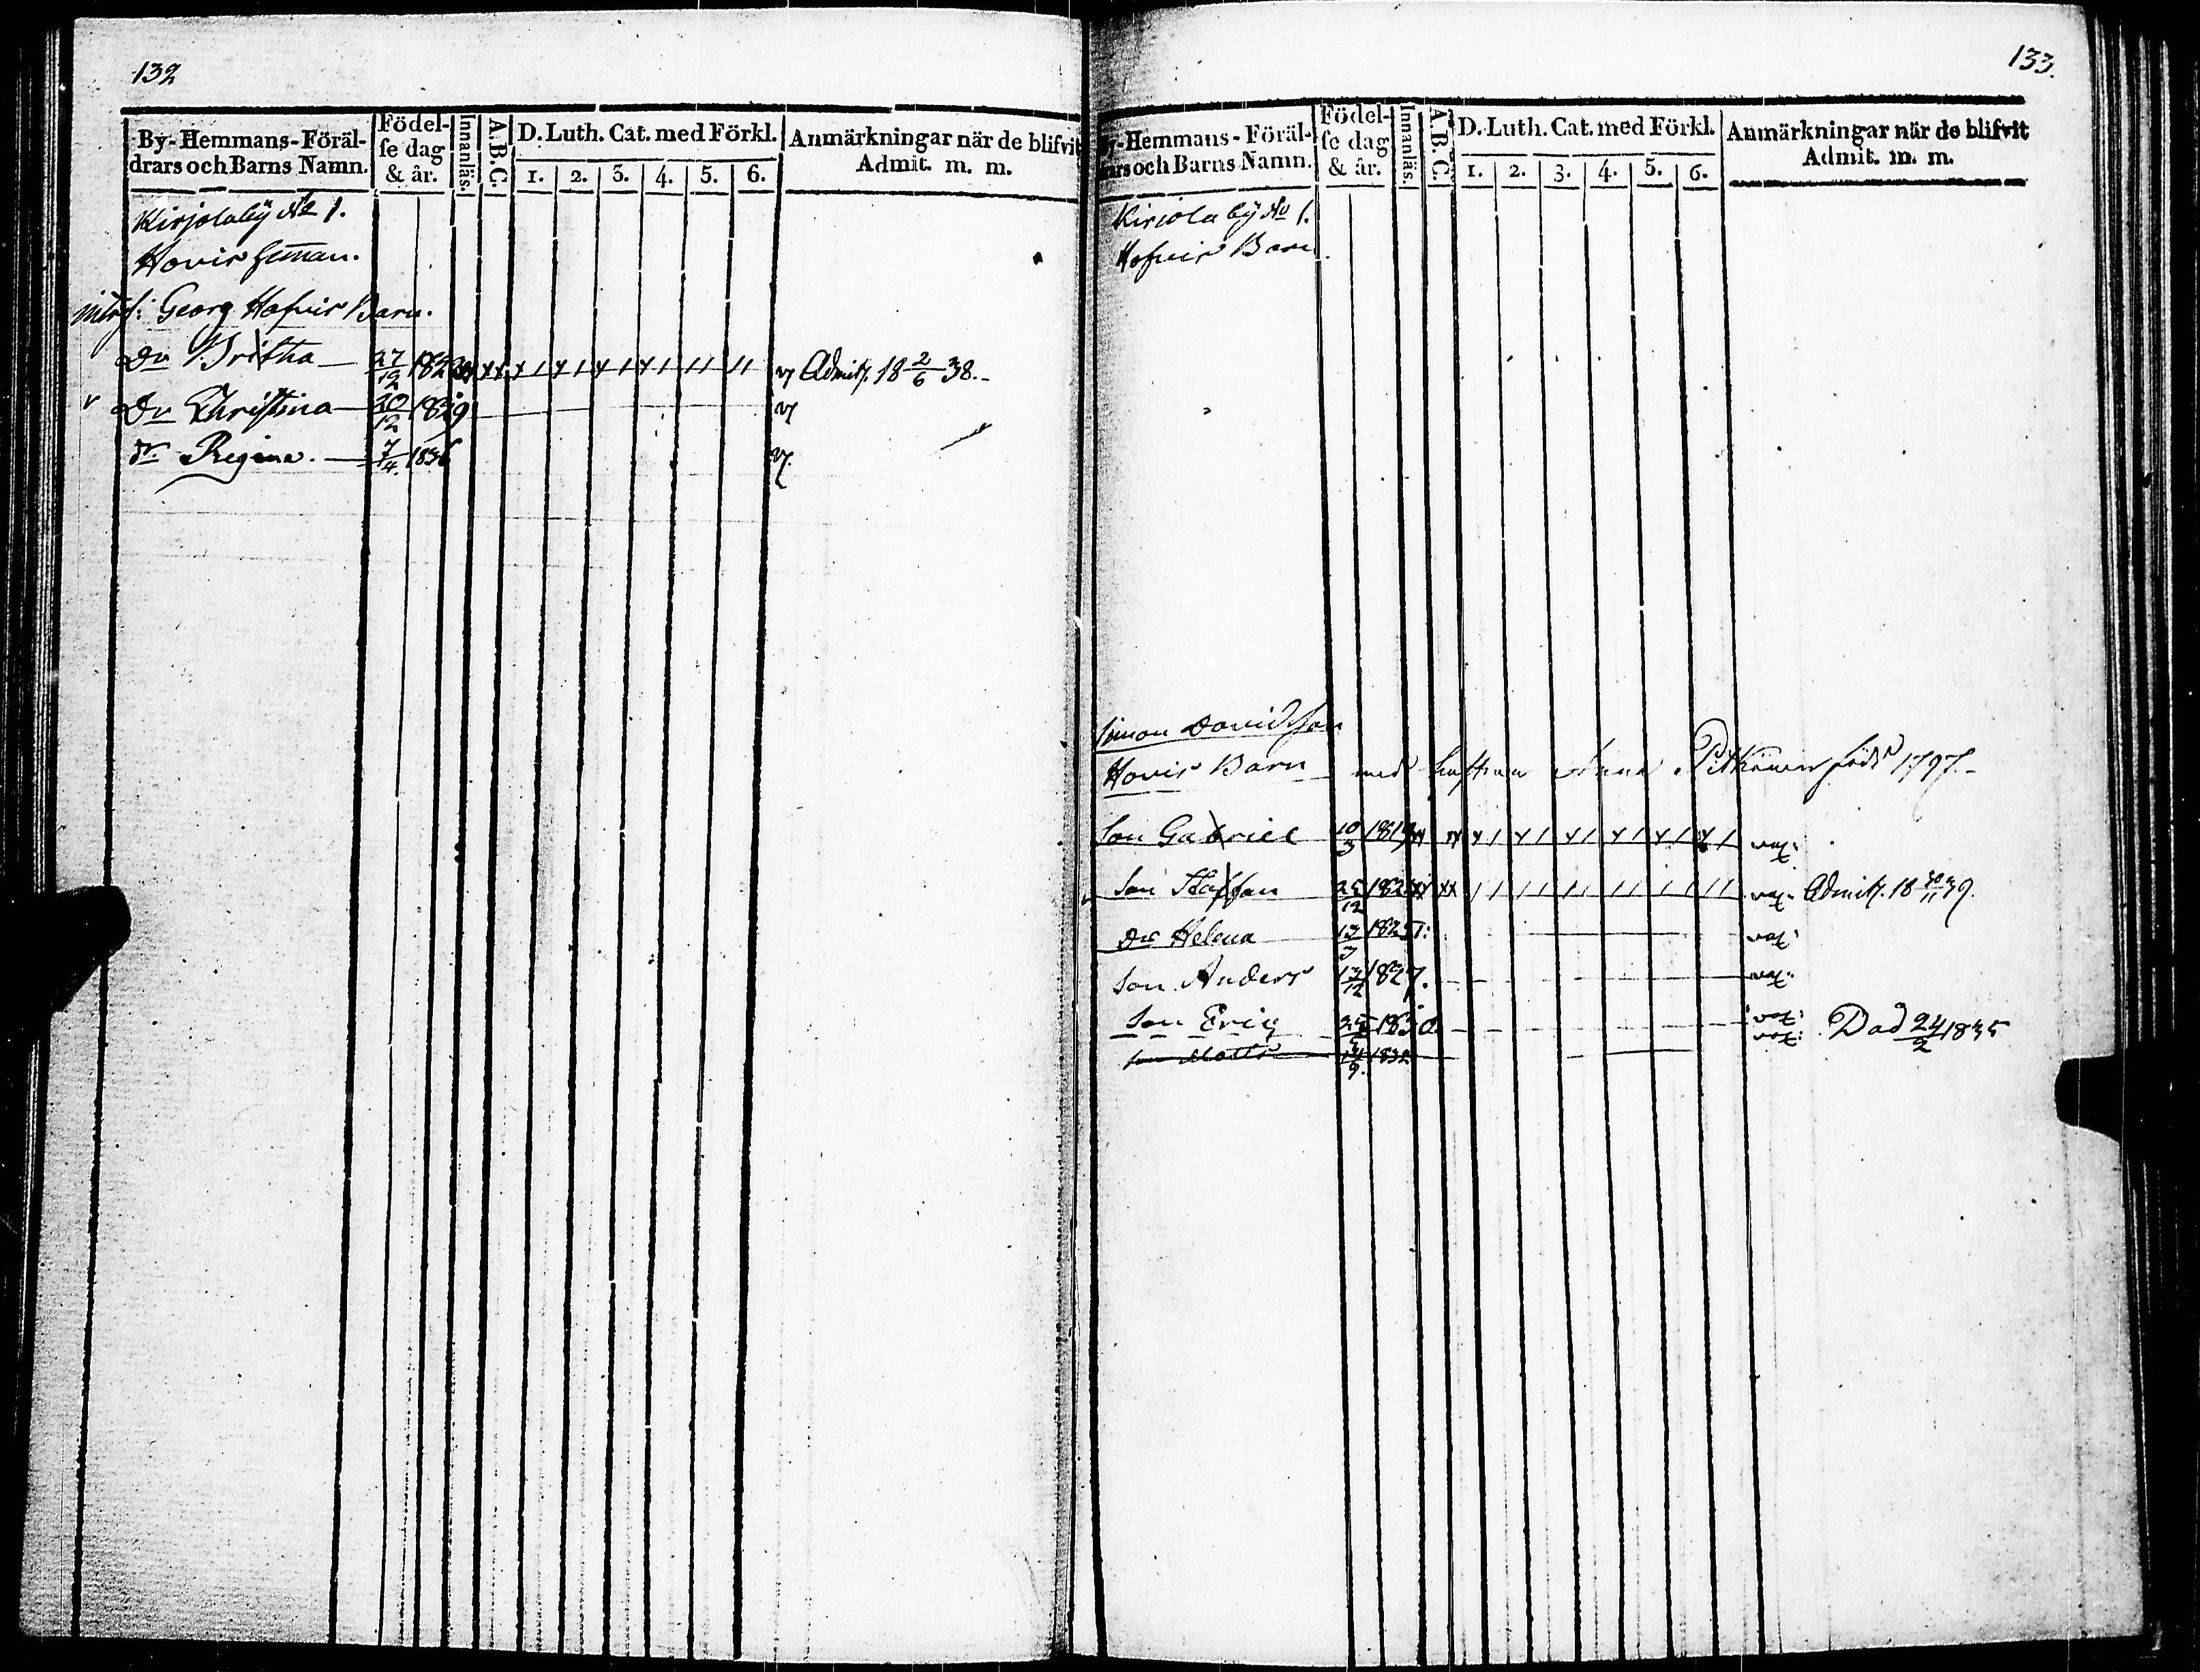 132
By-Hemmans-Föräl-
drars och Barns Namn.
Födel-
se dag
& år.
Innanläs.
A.B.C.
D. Luth. Cat. med Förkl.
1. 2. 3. 4. 5. 6.
Anmärkningar när de blifvit
Admit. m. m.
Kirjolaby No 1.
Hovis
Georg Hofvis Barn.
Dr Britha 27/12 182 Admitt. 18 2/6 38.
Dr Christina 30/12 1829
dr Regina. 7/4. 1836
133.
By-Hemmans-Föräl-
drars och Barns Namn.
Födel-
se dag
& år.
Innanläs.
A.B.C.
D. Luth. Cat. med Förkl.
1. 2. 3. 4. 5. 6.
Anmärkningar när de blifvit
Admit. m. m.
Kirjola by No 1.
Hofvis Barn
Simon Davidsson
Hovis Barn med hustrun Anna Pitkänen född 1797.
Son Gabriel 10/3 1819 vax.
Son Staffan 25/12 182 vax. Admitt. 18 30/11 39.
Dr Helena 13/3 1825 vax.
Son Anders 13/12 1827. vax.
Son Eric 1830. vax.
Son Matts 14/9. 1832 vax. Död 24/2 1835